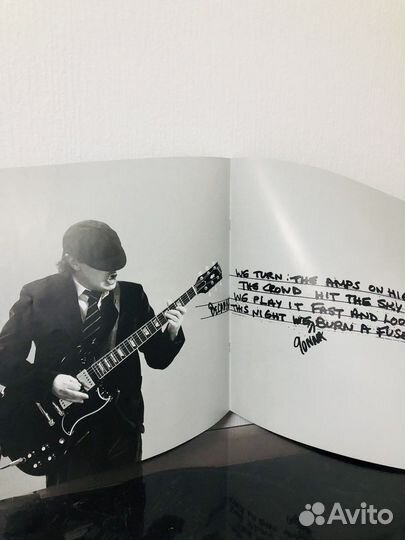 WE TURN THE AMPS ON HI
THE CROWD HIT THE SKY
WE PLAY IT FAST AND LOO
THIS NIGHT WE BURN A FUSE
Avito